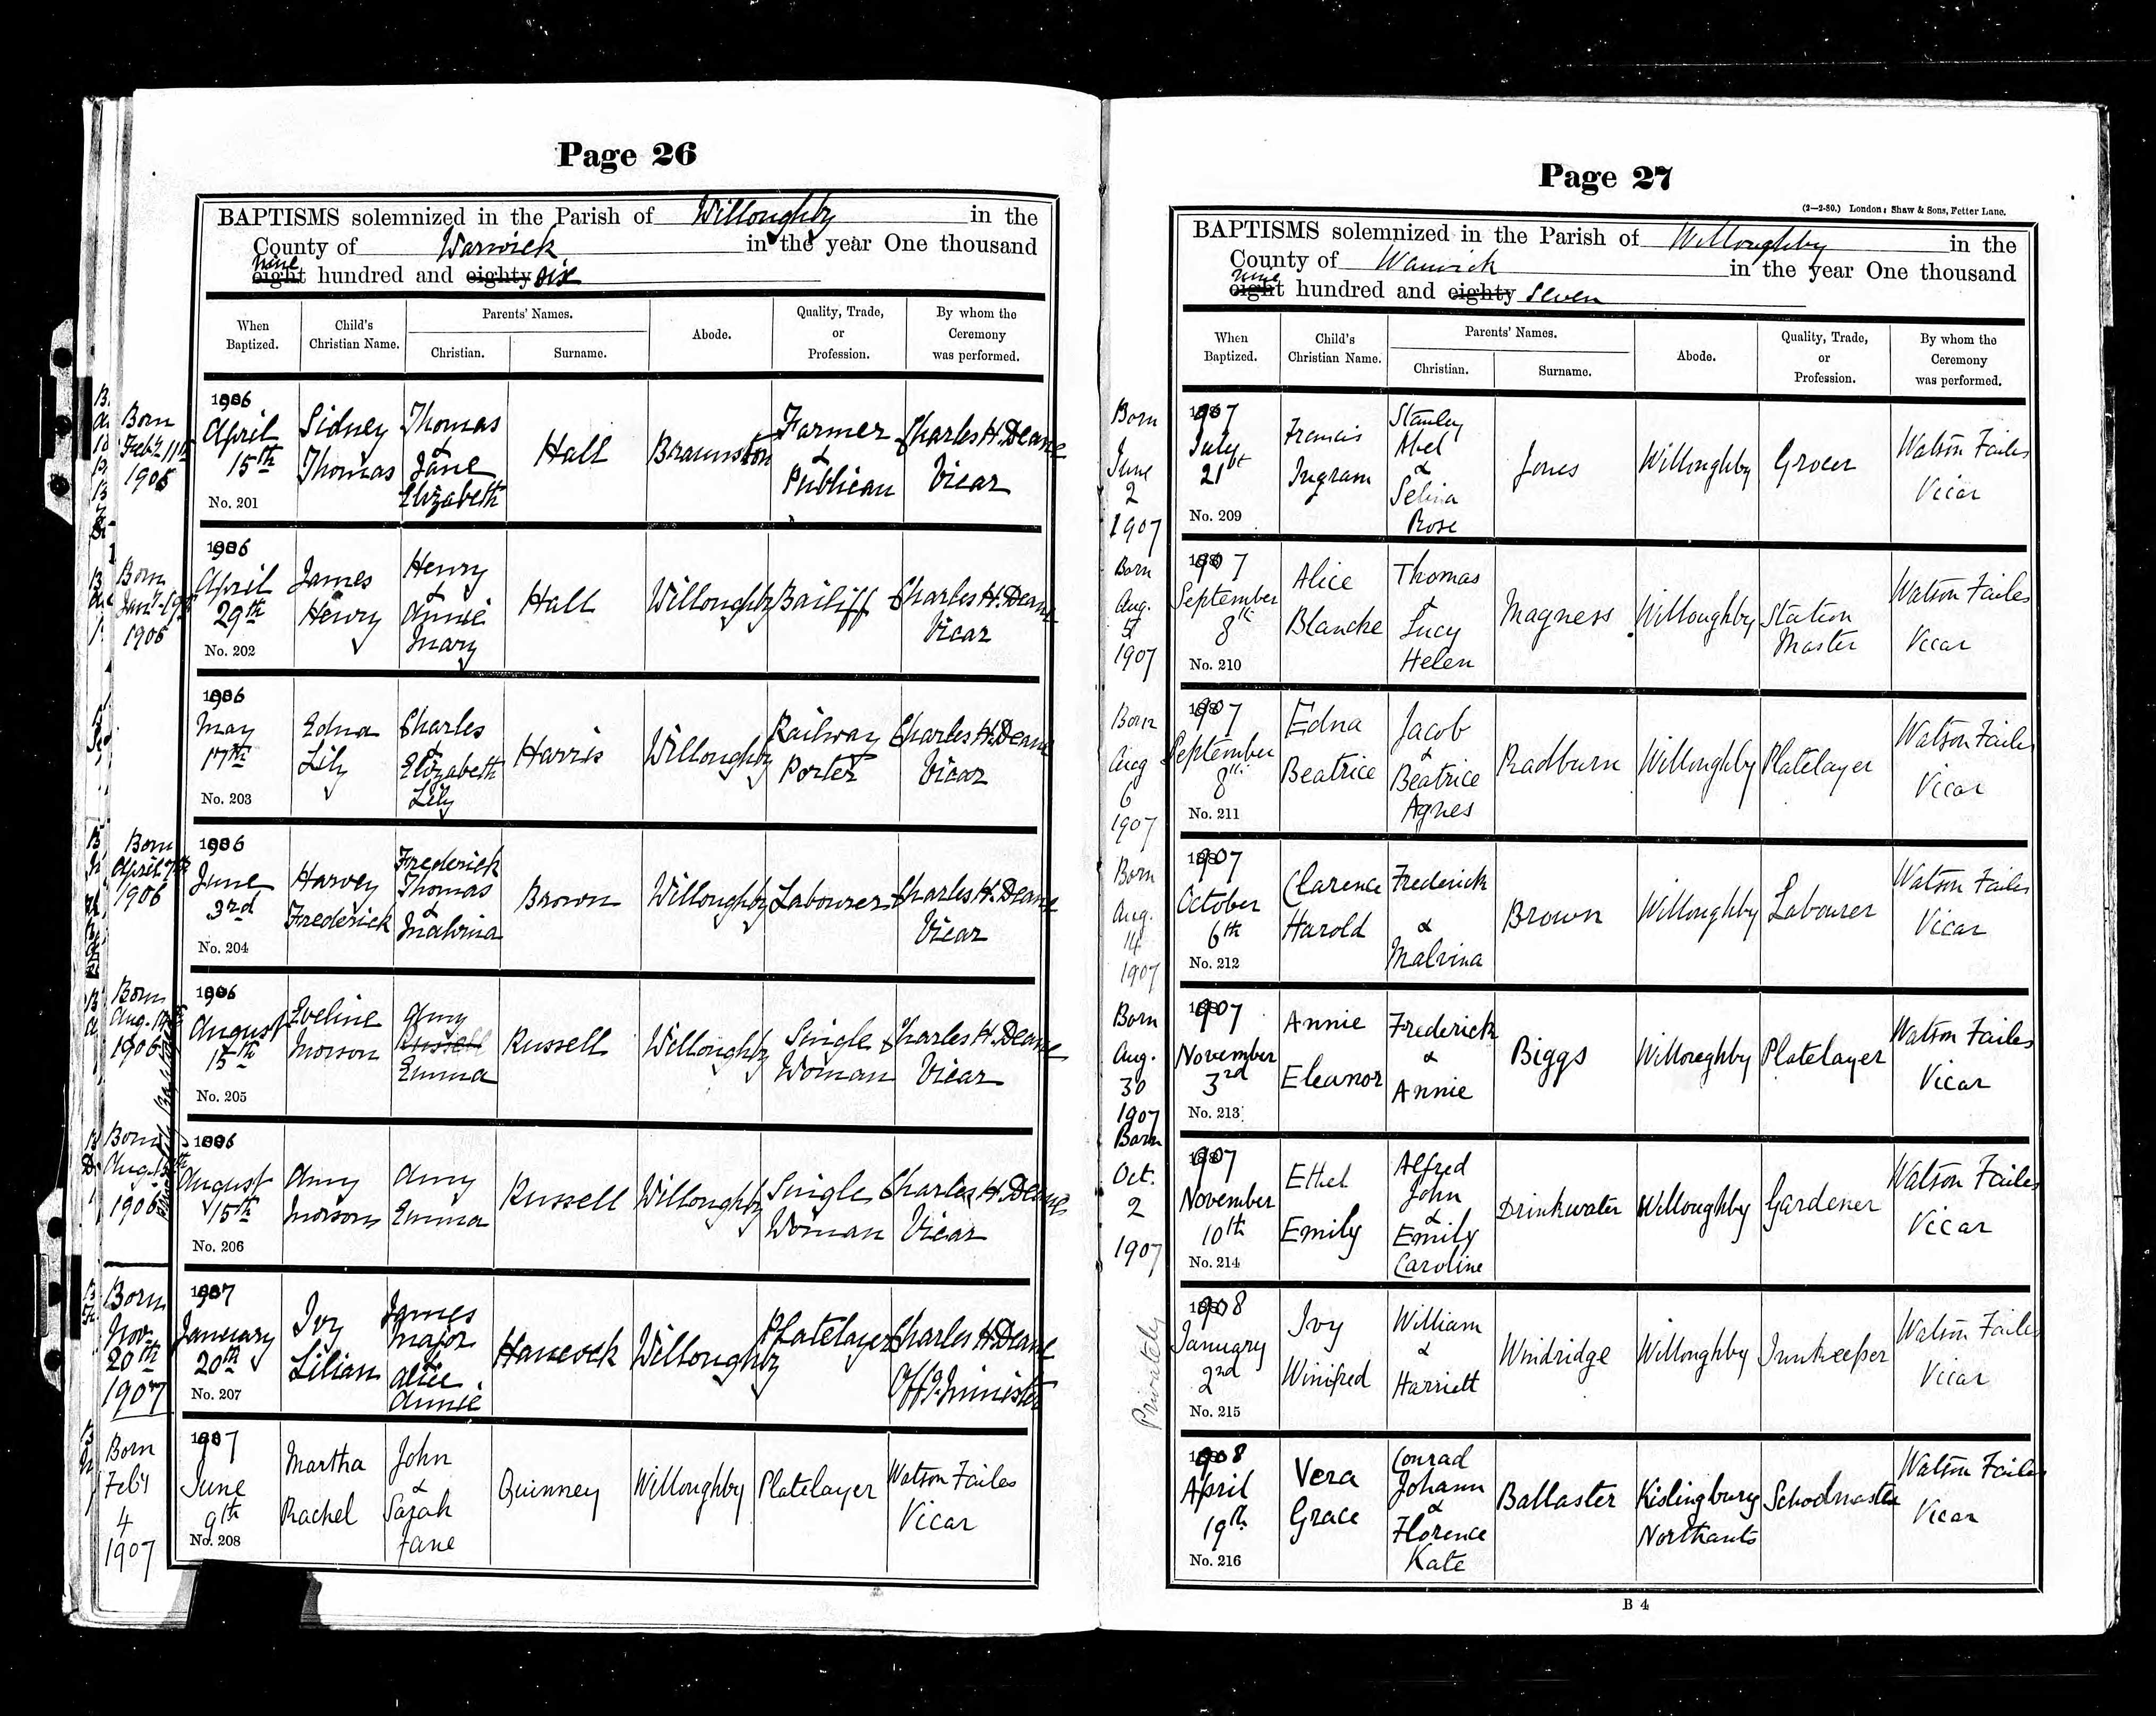 Page 26
BAPTISMS solemnized in the Parish of Willoughby in the
County of Warwick in the year One thousand
nine
eight hundred and eighty six
When Baptized.
Child's Christian Name.
Parents' Names.
Christian.
Surname.
Abode.
Quality, Trade, or Profession.
By whom the Ceremony was performed.
Born Feby 11th 1906
1906 April 15th
No. 201
Sidney Thomas
Thomas & Jane Elizabeth
Hall
Braunston
Farmer & Publican
Charles H. Deane Vicar
Born Jany 19th 1906
1906 April 29th
No. 202
James Henry
Henry & Annie Mary
Hall
Willoughby
Bailiff
Charles H. Deane Vicar
1906 May 17th
No. 203
Edna Lily
Charles & Elizabeth Lily
Harris
Willoughby
Railway Porter
Charles H. Deane Vicar
Born April 7th 1906
1906 June 3rd
No. 204
Harvey Frederick
Frederick Thomas & Malvina
Brown
Willoughby
Labourer
Charles H. Deane Vicar
Born Aug. 1906
1906 August 15th
No. 205
Eveline Morson
Amy Russell Emma
Russell
Willoughby
Single Woman
Charles H. Deane Vicar
Born Aug. 1906
1906 August 15th
No. 206
Amy Morson
Amy Emma
Russell
Willoughby
Single Woman
Charles H. Deane Vicar
Born Nov. 20th 1907
1907 January 20th
No. 207
Ivy Lilian
James Major Alice Annie
Hancock
Willoughby
Platelayer
Charles H. Deane Offg. Minister
Born Feby 4 1907
1907 June 9th
No. 208
Martha Rachel
John & Sarah Jane
Quinney
Willoughby
Platelayer
Watson Failes Vicar
Page 27
(2—2-80.) London: Shaw & Sons, Fetter Lane.
BAPTISMS solemnized in the Parish of Willoughby in the
County of Warwick in the year One thousand
nine
eight hundred and eighty seven
When Baptized.
Child's Christian Name.
Parents' Names.
Christian.
Surname.
Abode.
Quality, Trade, or Profession.
By whom the Ceremony was performed.
Born June 2 1907
1907 July 21st
No. 209
Francis Ingram
Stanley Abel & Selina Rose
Jones
Willoughby
Grocer
Watson Failes Vicar
Born Aug. 1907
1907 September 8th
No. 210
Alice Blanche
Thomas & Lucy Helen
Magness
Willoughby
Station Master
Watson Failes Vicar
Born Aug 6 1907
1907 September 8th
No. 211
Edna Beatrice
Jacob & Beatrice Agnes
Radburn
Willoughby
Platelayer
Watson Failes Vicar
Born Aug. 14 1907
1907 October 6th
No. 212
Clarence Harold
Frederick & Malvina
Brown
Willoughby
Labourer
Watson Failes Vicar
Born Aug. 30 1907
1907 November 3rd
No. 213
Annie Eleanor
Frederick & Annie
Biggs
Willoughby
Platelayer
Watson Failes Vicar
Born Oct. 2 1907
1907 November 10th
No. 214
Ethel Emily
Alfred John & Emily Caroline
Drinkwater
Willoughby
Gardener
Watson Failes Vicar
Privately
1908 January 2nd
No. 215
Ivy Winifred
William & Harriett
Windridge
Willoughby
Innkeeper
Watson Failes Vicar
1908 April 19th
No. 216
Vera Grace
Conrad Johann & Florence Kate
Ballaster
Kislingbury Northants
Schoolmaster
Watson Failes Vicar
B 4